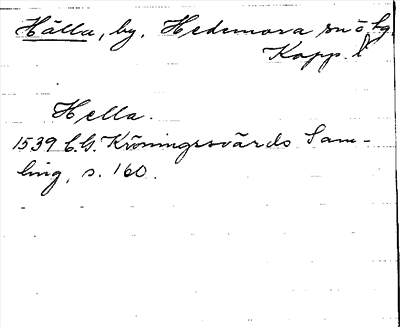 Hälla, by, Hedemora sn ö. lg.
Kopp. l
Hella.
1539 C.G. Kröningssvärds Sam-
ling, s. 160.